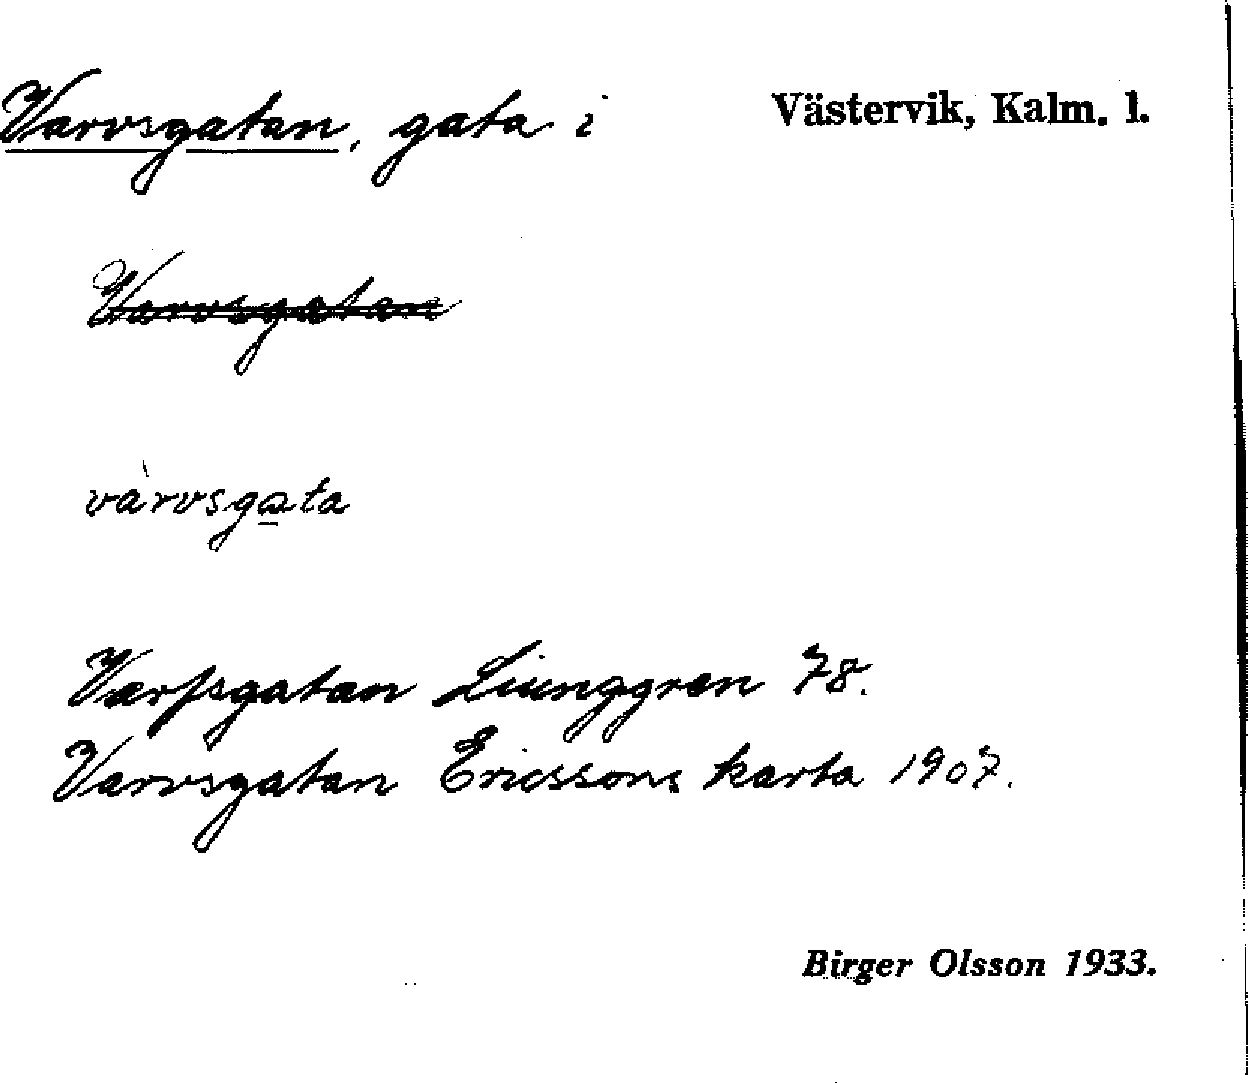 Varvsgatan, gata i Västervik, Kalm. l.
Varvsgatan
vàrvsgata
Varfsgatan Liunggren 78.
Varvsgatan Ericssons karta 1907.
Birger Olsson 1933.